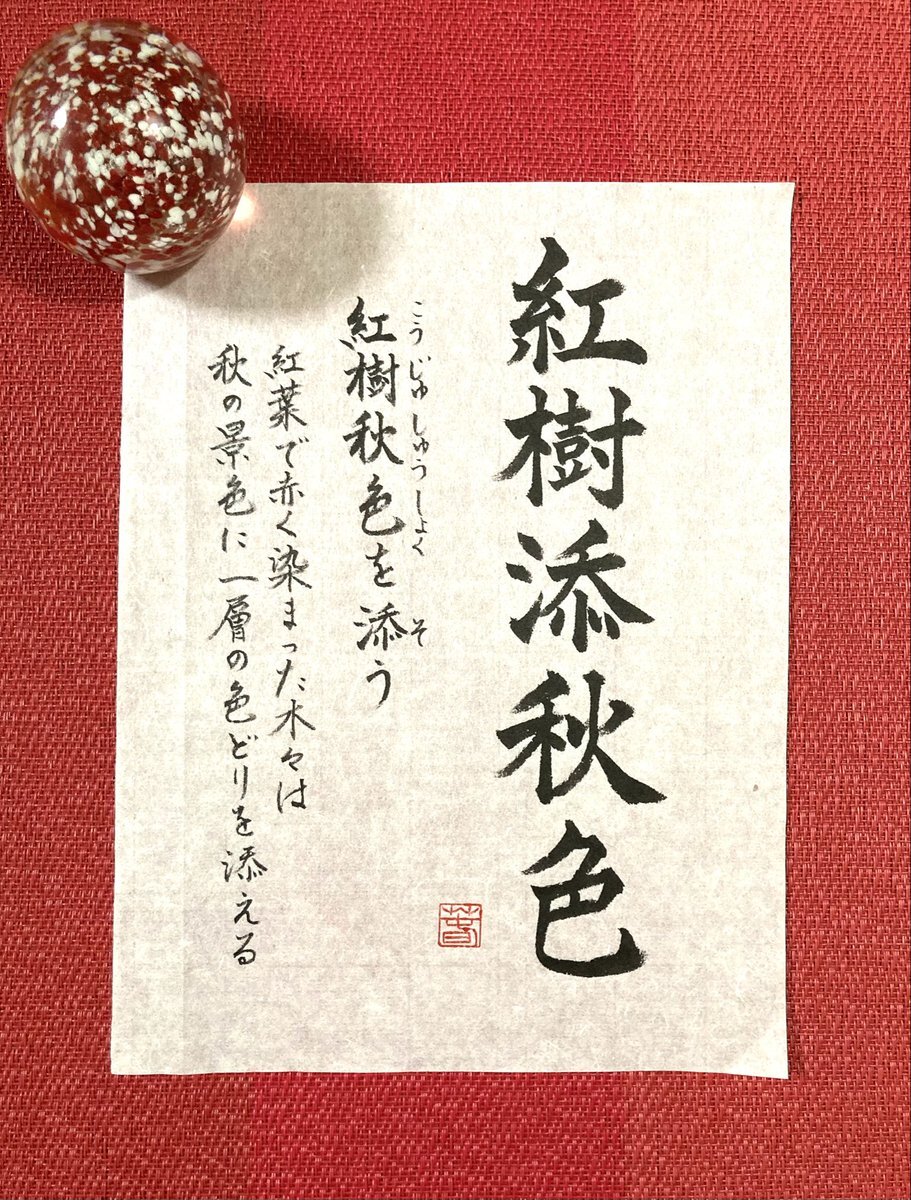 紅樹添秋色
こうじゅしゅうしょく そ
紅樹秋色を添う
紅葉で赤く染まった木々は
秋の景色に一層の色どりを添える